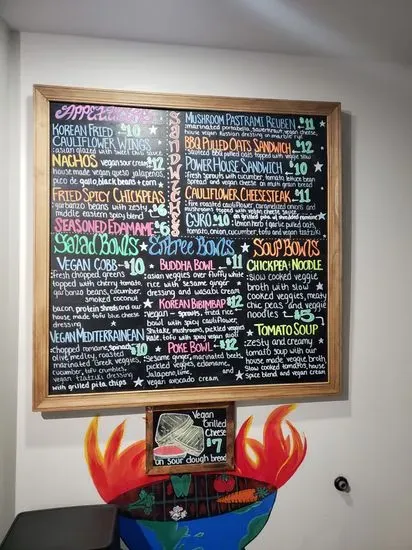 APPETIZERS
KOREAN FRIED $10
CAULIFLOWER WINGS
asian glazed with sweet chili sauce
NACHOS vegan sour cream $12
house made vegan queso, jalapeños,
pico de gallo, black beans + corn
FRIED SPICY CHICKPEAS
garbanzo beans with zesty $6
middle eastern spicy blend
SEASONED EDAMAME $6
SANDWICHES
MUSHROOM PASTRAMI REUBEN $11
marinated portabella, sauerkraut, vegan cheese,
house vegan Russian dressing on marble rye
BBQ PULLED OATS SANDWICH $12
sauteed BBQ pulled oats topped with veggie slaw
POWER HOUSE SANDWICH $10
fresh sprouts with cucumber, tomato, lettuce, bean
spread and vegan cheese on multi grain bread
CAULIFLOWER CHEESESTEAK $11
fire roasted cauliflower, caramelized onions and
mushrooms topped with vegan cheese sauce
GYRO $10 on grilled pita w/ shredded romaine
lemon herb + garlic pulled oats,
tomato, onion, cucumber, tofu and vegan tzatziki
Salad Bowls
VEGAN COBB $10
fresh chopped greens
topped with cherry tomato,
garbanzo beans, cucumber,
smoked coconut
bacon, protein shreds and our
house made tofu blue cheese
dressing
VEGAN MEDITERRANEAN
chopped romaine, spinach, $10
olive medley, roasted
marinated Greek veggies,
cucumber, tofu crumbles,
vegan tzatziki dressing
with grilled pita chips
Entree Bowls
BUDDHA BOWL $11
asian veggies over fluffy white
rice with sesame ginger
dressing and wasabi cream
KOREAN BIBIMBAP $12
vegan - sprouts, fried rice
bowl with spicy cauliflower,
shitake, mushrooms, pickled veggies
kale, tofu with spicy vegan aioli
POKE BOWL $12
Sesame ginger, marinated beets,
pickled veggies, edamame,
jalapeno, lime, and
vegan avocado cream
Soup Bowls
CHICKPEA + NOODLE
slow cooked veggie
broth with slow
cooked veggies, meaty
chic peas and veggie
noodles
$5
TOMATO SOUP
zesty and creamy
tomato soup with our
house made veggie broth
slow cooked tomatoes, house
spice blend and vegan cream
Vegan
Grilled
Cheese
$7
on sour dough bread